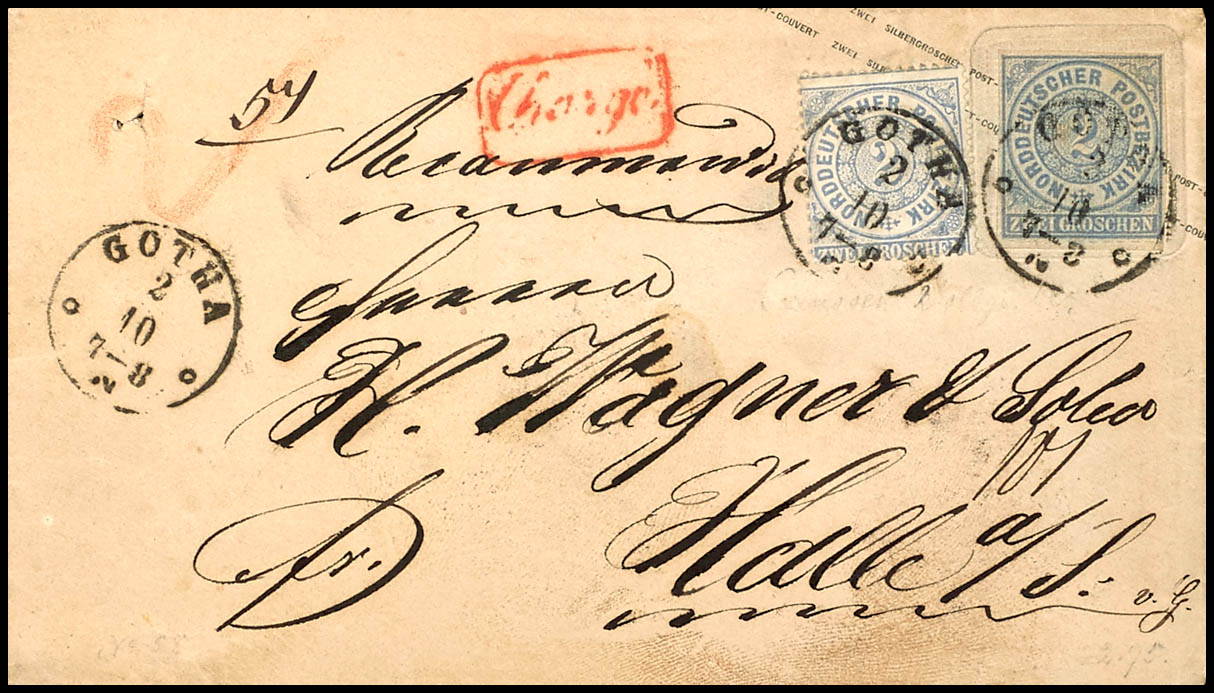 POST-COUVERT ZWEI SILBERGROSCHEN POST-
POST-COUVERT ZWEI SILBERGROSCHEN POST-COUVERT
54
Charge.
NORDDEUTSCHER POSTBEZIRK
2
ZWEI GROSCHEN
NORDDEUTSCHER POSTBEZIRK
2
ZWEI GROSCHEN
GOTHA
2
10
7-8
N.
GOTHA
2
10
7-8
N.
GOTHA
2
10
7-8
N
Herren
H. Wagner & Sohn
Halle a/S.
fr.
v. G.